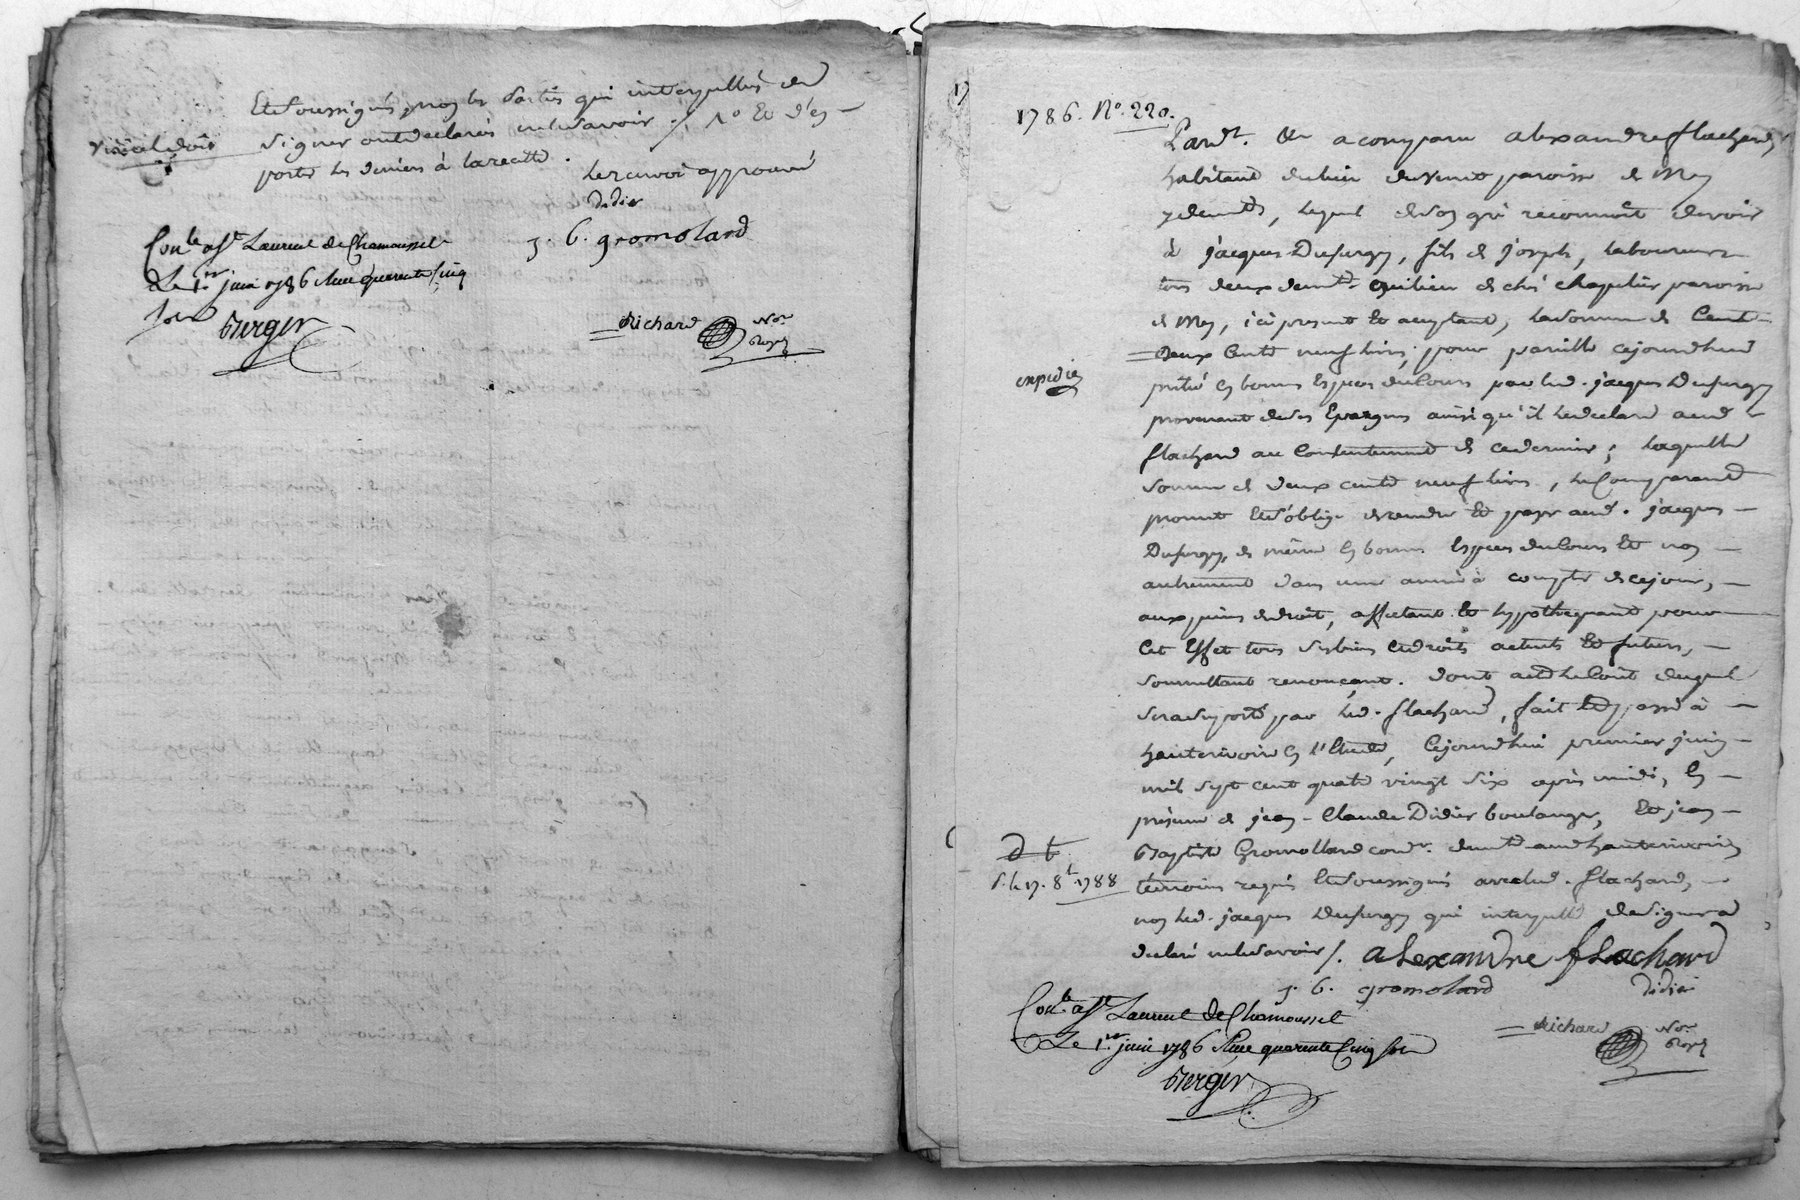 Et soussignés, non les parties qui interpellés de
signer ont declarés ne le savoir ./. 
porté les deniers à la recette.
le renvoi approuvé
didier
j. b. gromolard
Con.le a St Laurent de Chamousset
Le 1.er juin 1786 Reçu quarente cinq
sols
Berger
Richard No.re Royal
1786. N.o 220.
Pardt. est comparu alexandre flachard,
habitant du lieu du paroisse de Mey
y demt., lequel de son gré reconnoît devoir
à jacques Dusurgey, fils de joseph, laboureur
tous deux demt. au lieu de chés chapelier paroisse
de Mey, ici present et acceptant, la somme de Cent
Deux cents neuf livres, pour pareille cejourdhui
prêté en bonnes Especes du Cours par led. jacques Dusurgey
provenant de ses Epargnes ainsi qu'il le declare aud.
flachard au Contentement de ce dernier ; laquelle
somme de deux cents neuf livres, le Comparant
promet et s'oblige de rendre et payer aud. jacques
Dusurgey, de même en bonnes Especes du Cours et non
autrement dans une année à compter de ce jour,
aux peines de droit, affectant et hypothequant pour
Cet Effet tous ses biens et droits actuels et futurs,
soumettant renonçant. Dont acte le Cout duquel
sera suporté par led. flachard, fait et passé à
hauterivoire en l'Etude, Cejourdhui premier juin
mil sept cent quatre vingt six après midi, En
présence de jean-Claude Didier boulanger, et jean
Baptiste Gromollard cordr. demt. aud. hauterivoire
témoins requis Et soussignés avec led. flachard,
non led. jacques Dusurgey qui interpellé de signer a
declaré ne le savoir /. alexandre flachard
j. b. gromolard
didier
Con.le a St Laurent de Chamousset
Le 1.er juin 1786 Reçu quarente cinq sols
Berger
Richard No.re Royal
expédié
d t
1788